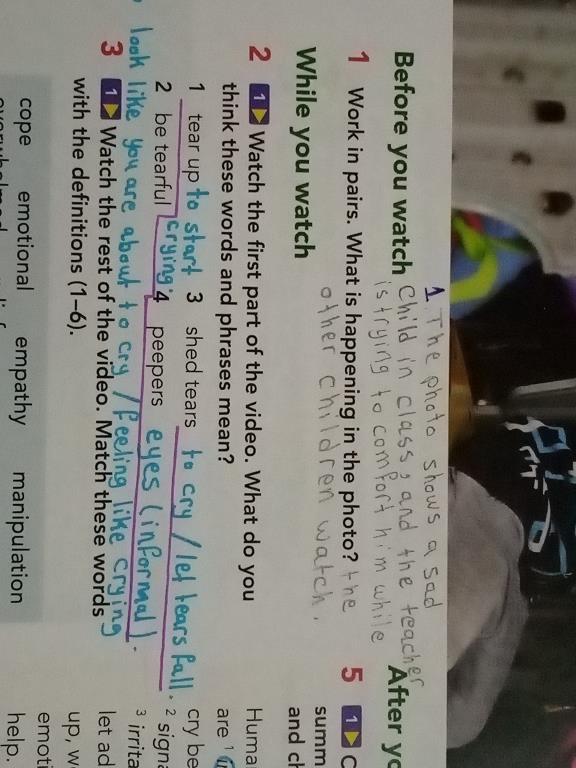 1. The photo shows a sad
Before you watch child in class, and the teacher
is trying to comfort him while
1 Work in pairs. What is happening in the photo? the
other children watch.
While you watch
2 1 Watch the first part of the video. What do you
think these words and phrases mean?
1 tear up to start 3 shed tears to cry / let tears fall.
2 be tearful crying. 4 peepers eyes (informal).
look like you are about to cry / feeling like crying
3 1 Watch the rest of the video. Match these words
with the definitions (1–6).
cope emotional empathy manipulation
After yo
5 1
summ
and ch
Huma
are 1
cry be
2 signa
3 irrita
let ad
up, w
emoti
help.